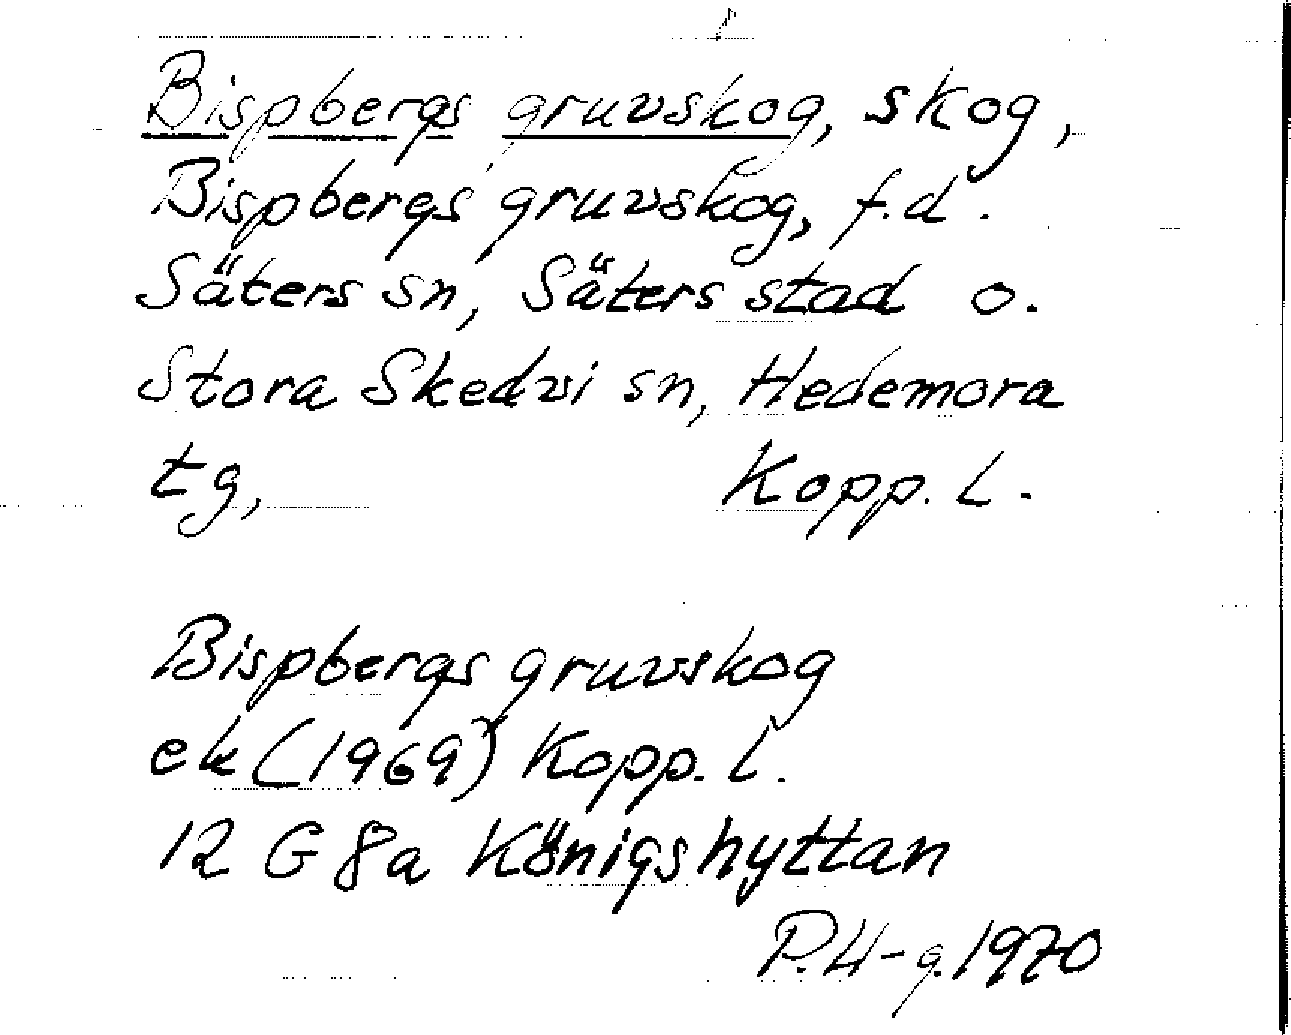 Bispbergs gruvskog, skog,
Bispbergs gruvskog, f.d.
Säters sn, Säters stad o.
Stora Skedvi sn, Hedemora
tg, Kopp. L.
Bispbergs gruvskog
ek (1969) Kopp. L.
12 G 8a Königshyttan
P.H-g. 1970